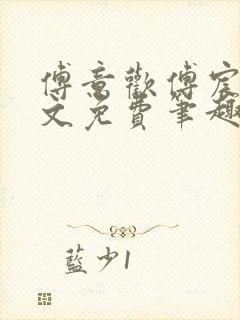 傅意歡傅宸
文免費筆趣
藍少1